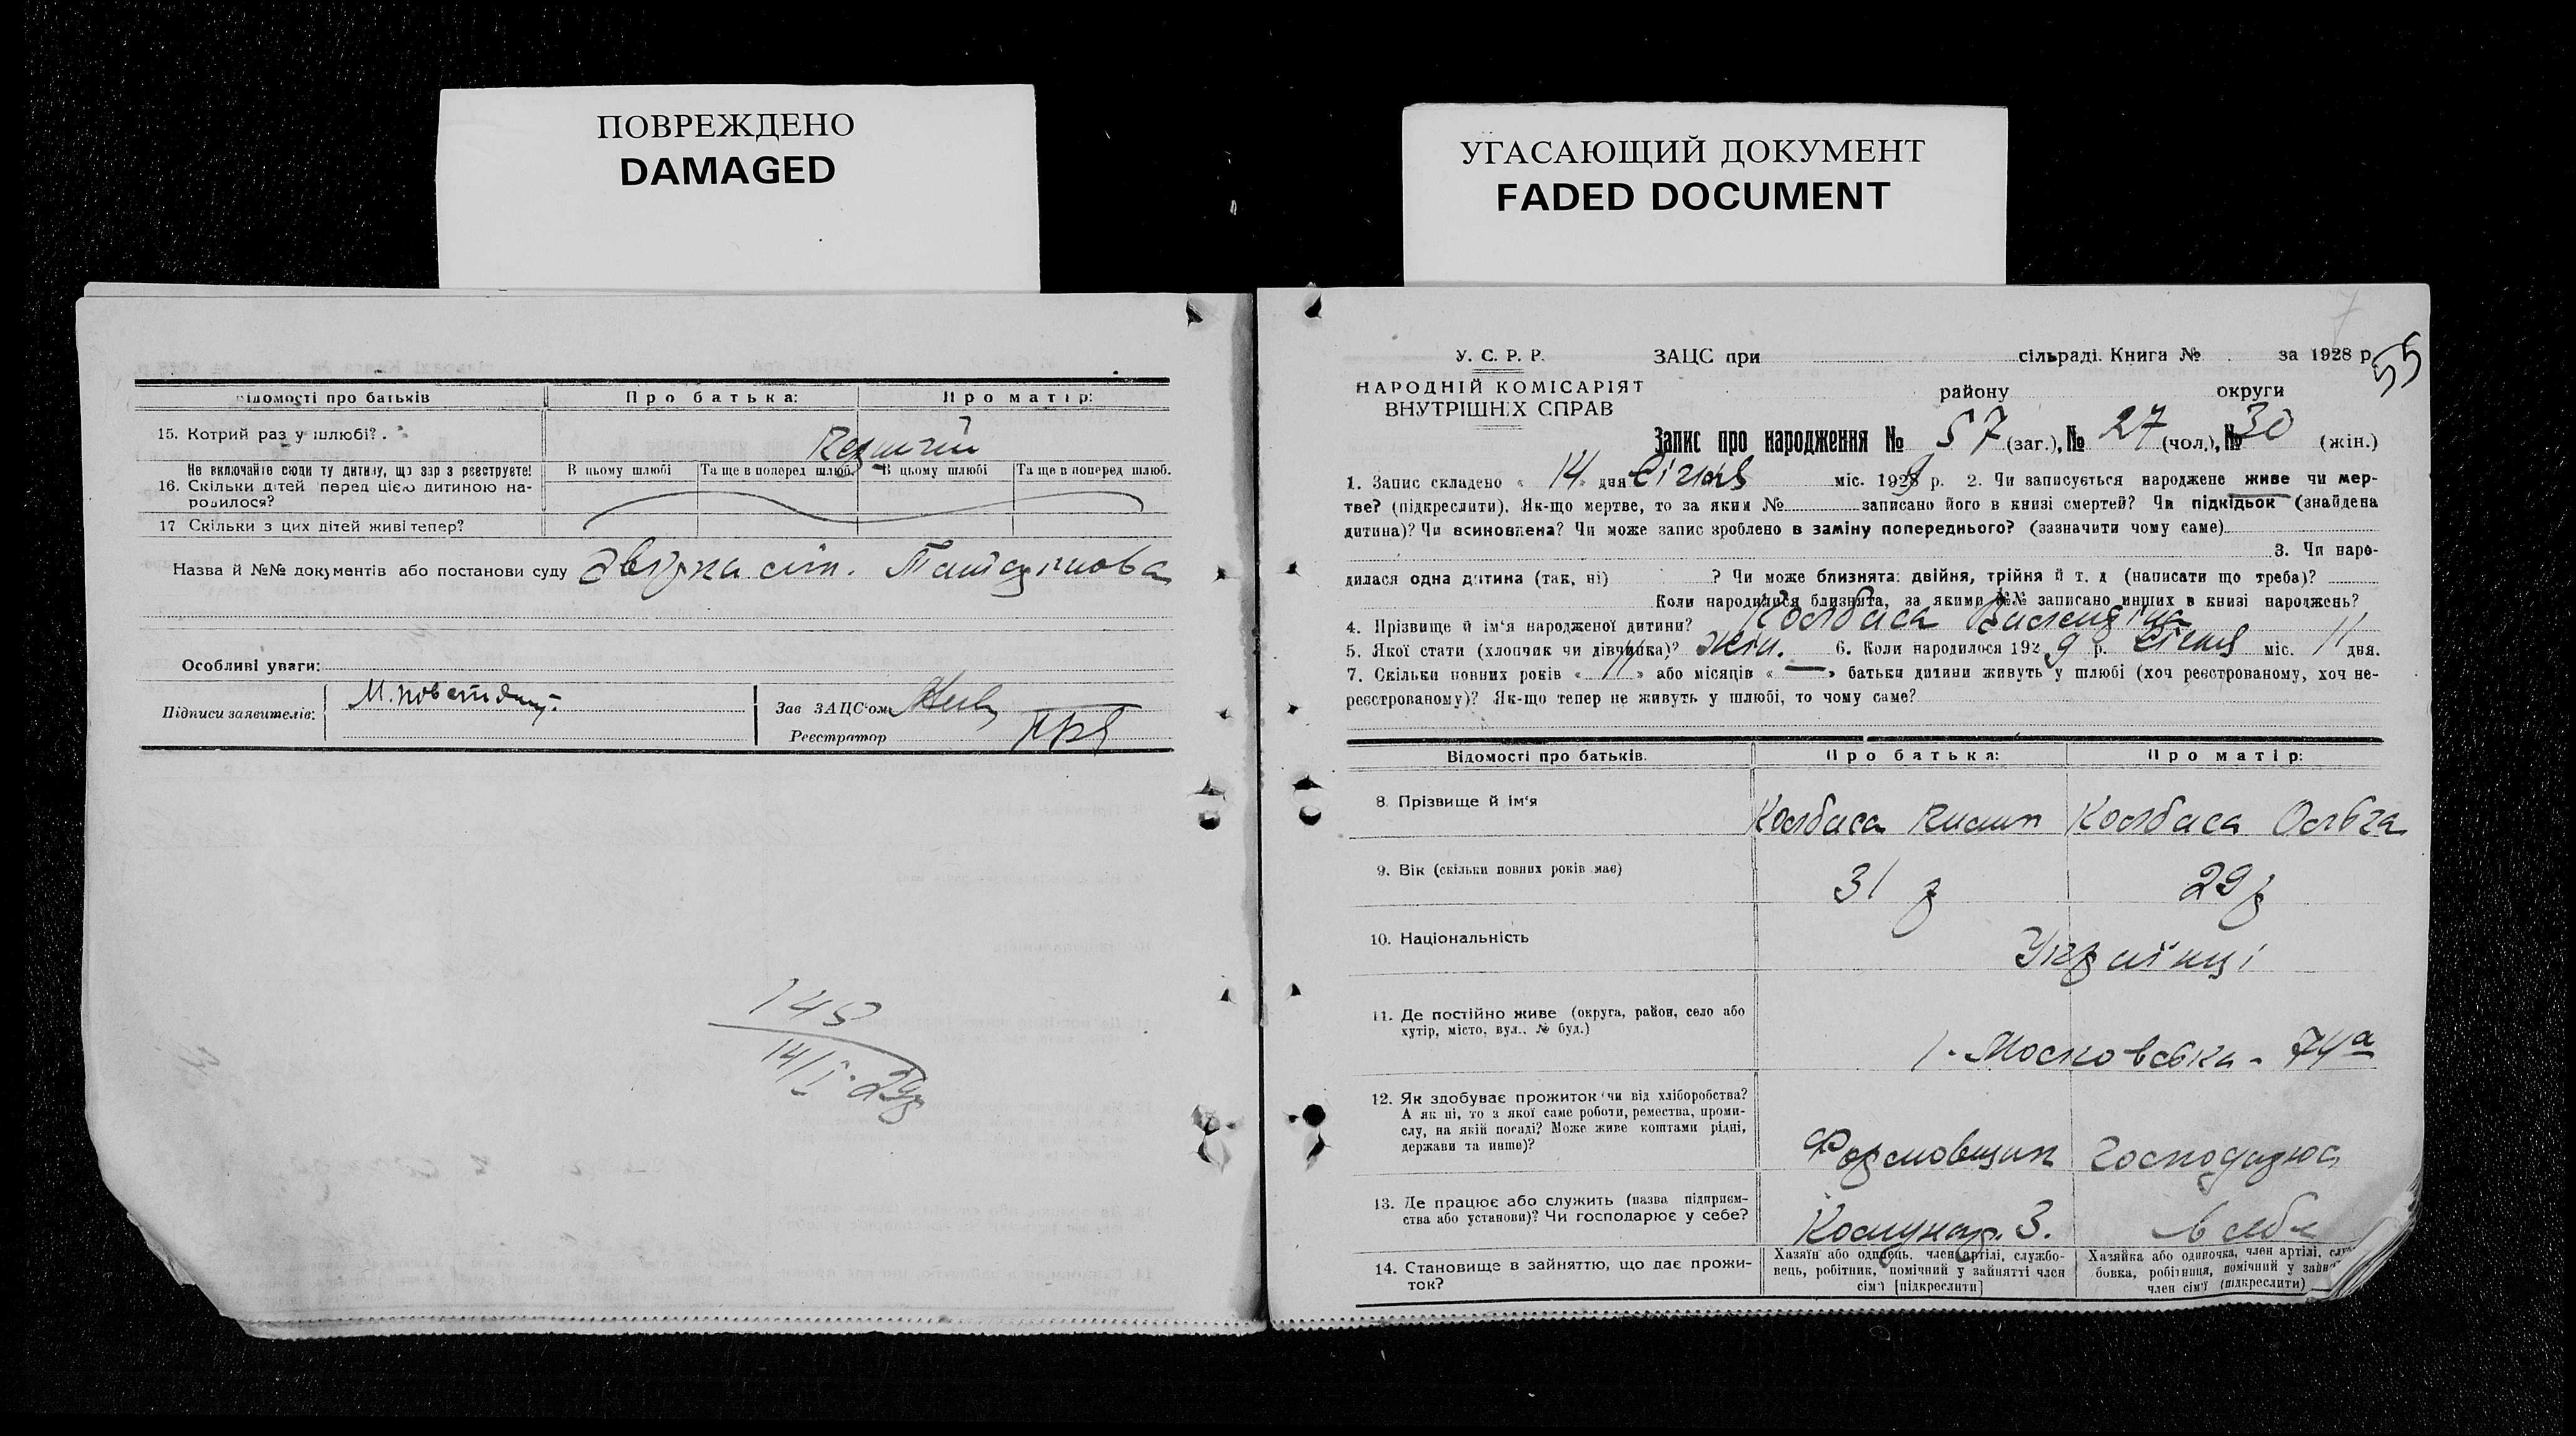 ПОВРЕЖДЕНО
DAMAGED
відомості про батьків
Про батька:
Про матір:
15. Котрий раз у шлюбі?
Не включайте сюди ту дитину, що зар з реєструєте!
В цьому шлюбі
Та ще в поперед шлюб.
В цьому шлюбі
Та ще в поперед шлюб.
16. Скільки дітей перед цією дитиною на-
родилося?
17 Скільки з цих дітей живі тепер?
Назва й №№ документів або постанови суду
Особливі уваги:
Підписи заявителів:
Зав ЗАЦС'ом
Реєстратор
145
14/I-29р
УГАСАЮЩИЙ ДОКУМЕНТ
FADED DOCUMENT
55
У. С. Р. Р.
ЗАЦС при сільраді. Книга № за 1928 р.
НАРОДНІЙ КОМІСАРІЯТ
ВНУТРІШНІХ СПРАВ
району округи
Запис про народження № 57 (заг.), № 27 (чол.), № 30 (жін.)
1. Запис складено « 14 дня Січня міс. 1929 р. 2. Чи записується народжене живе чи мер-
тве? (підкреслити). Як-що мертве, то за яким № записано його в книзі смертей? Чи підкідьок (знайдена
дитина)? Чи всиновлена? Чи може запис зроблено в заміну попереднього? (зазначити чому саме)
3. Чи наро-
дилася одна дитина (так, ні) ? Чи може близнята: двійня, трійня й т. д (написати що треба)?
Коли народилися близнята, за якими №№ записано инших в книзі народжень?
4. Прізвище й ім'я народженої дитини? Колбаса Валендіна
5. Якої стати (хлопчик чи дівчинка)? жін. 6. Коли народилося 1929 р. Січня міс. 11 дня.
7. Скільки повних років « 11 » або місяців « — » батьки дитини живуть у шлюбі (хоч реєстрованому, хоч не-
реєстрованому)? Як-що тепер не живуть у шлюбі, то чому саме?
Відомості про батьків.
Про батька:
Про матір:
8. Прізвище й ім'я
Колбаса Килип
Колбаса Ольга
9. Вік (скільки повних років має)
31 р
29 р
10. Національність
Українці
11. Де постійно живе (округа, район, село або
хутір, місто, вул., № буд.)
1. Московська - 74а
12. Як здобуває прожиток чи від хліборобства?
А як ні, то з якої саме роботи, ремества, проми-
слу, на якій посаді? Може живе коштами рідні,
держави та инше)?
Формовщик
Господарює
13. Де працює або служить (назва підприєм-
ства або установи)? Чи господарює у себе?
Комунар. З.
в себе
14. Становище в зайняттю, що дає прожи-
ток?
Хазяїн або одинець, член артілі, службо-
вець, робітник, помічний у зайнятті член
сім'ї [підкреслити]
Хазяйка або одиночка, член артілі,
бовка, робітниця, помічний у
член сім'ї (підкреслити)